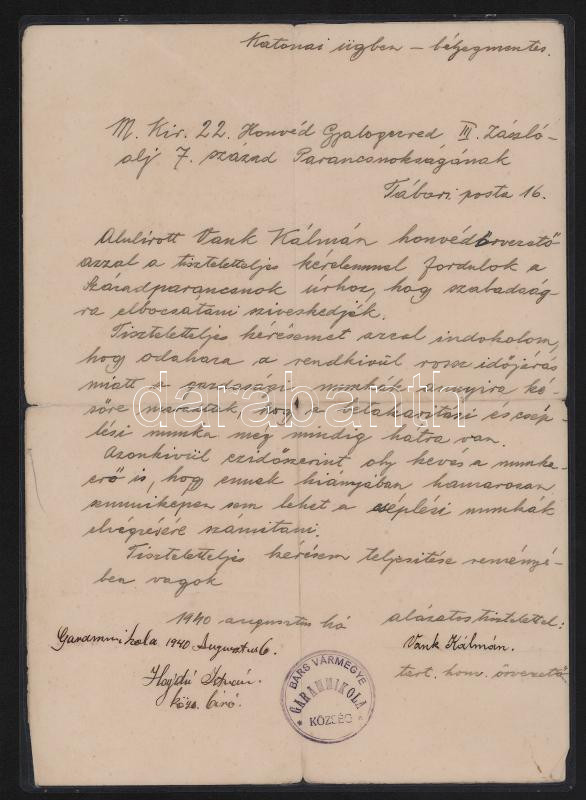 Katonai ügben – bélyegmentes.
M. Kir. 22. Honvéd Gyalogezred III. Zászló-
alj 7. század Parancsnokságának
Tábori posta 16.
Alulírott Vank Kálmán honvéd őrvezető
azzal a tiszteletteljes kérelemmel fordulok a
Századparancsnok úrhoz, hogy szabadság-
ra elbocsátani sziveskedjék.
Tiszteletteljes kérésemet azzal indokolom,
hogy odahaza a rendkivül rossz időjárás
miatt a gazdasági munkák annyira ké-
sőre maradtak, hogy a betakarítási és csép-
lési munka még mindig hátra van.
Azonkivül ezidőszerint oly kevés a munka-
erő is, hogy ennek hiányában hamarosan
semmiképen sem lehet a cséplési munkák
elvégzésére számítani.
Tiszteletteljes kérésem teljesítése reményé-
ben vagyok
1940 augusztus hó
alázatos tisztelettel:
Garammikola 1940 Augusztus 6.
Vank Kálmán.
tart. honv. őrvezető
Hajdú István
közs. biró.
BARS VÁRMEGYE
GARAMMIKOLA
KÖZSÉG
darabanth